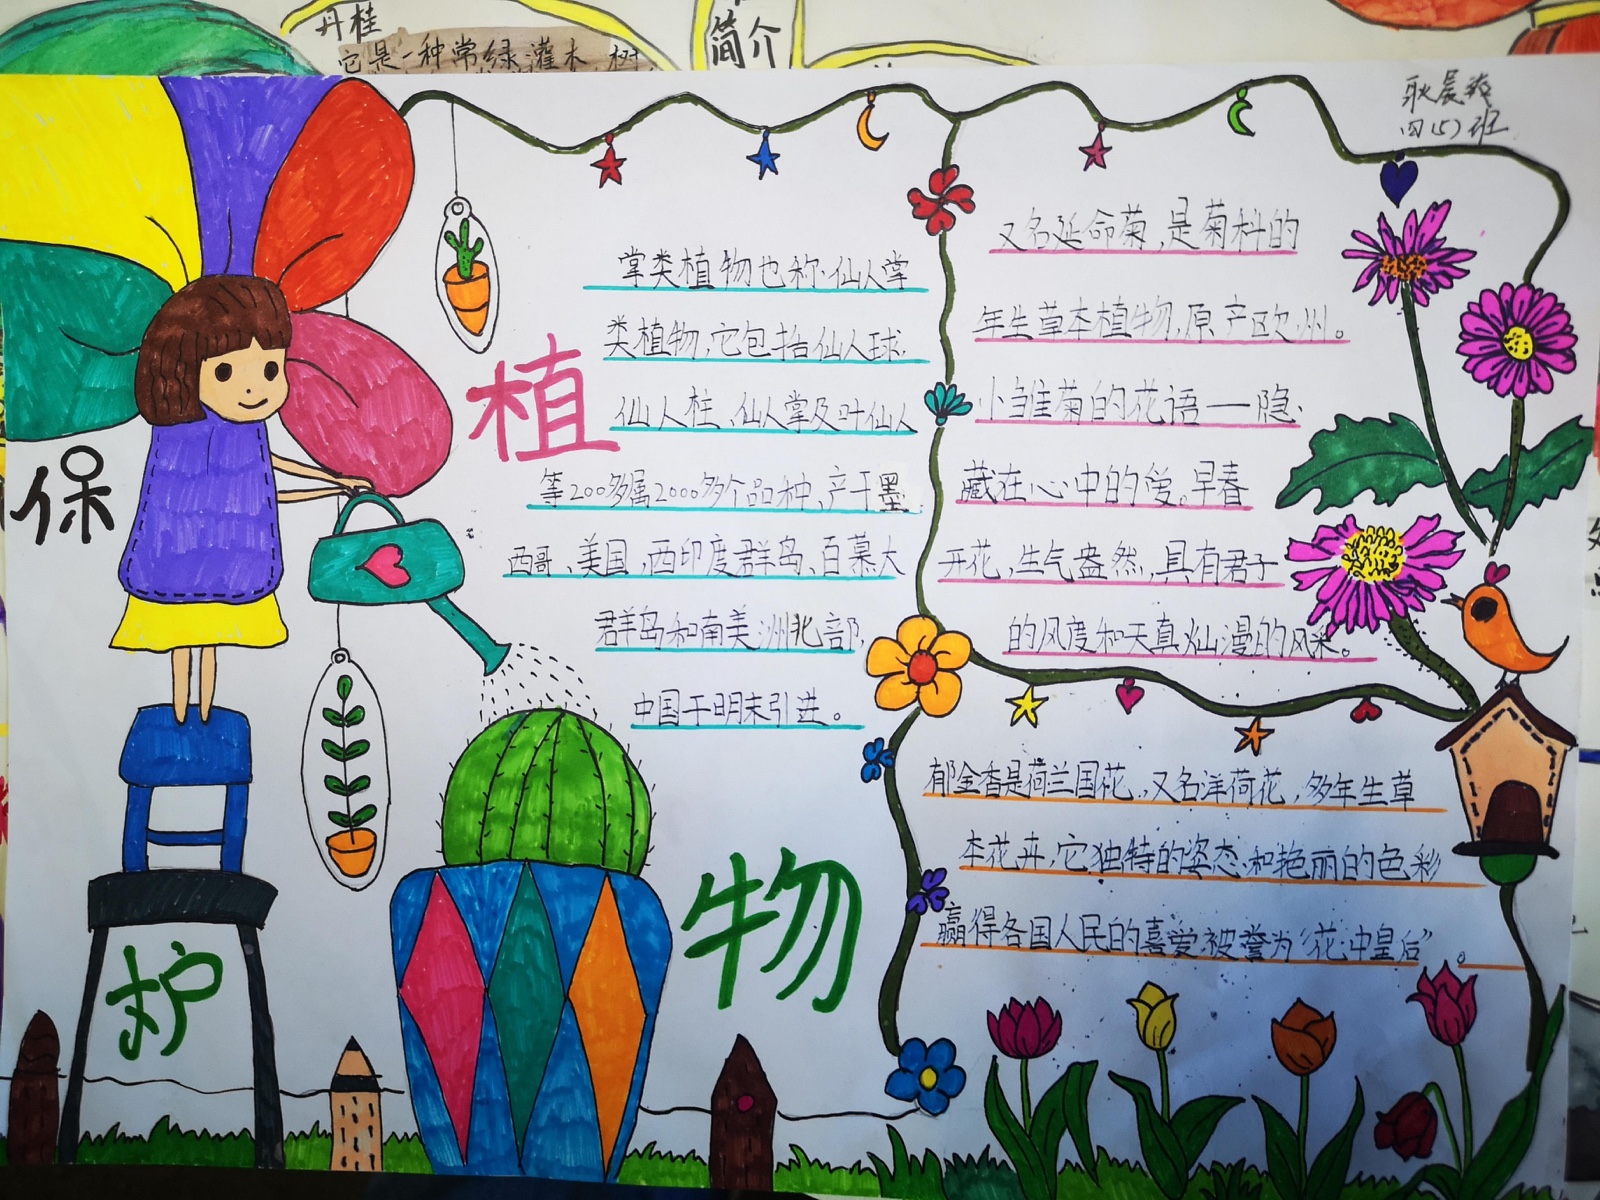 丹桂
它是一种常绿灌木，树
简介
耿晨
四(5)班
保
护
植
物
掌类植物也称仙人掌
类植物，它包括仙人球、
仙人柱、仙人掌及叶仙人
等200多属2000多个品种、产于墨
西哥、美国，西印度群岛、百慕大
群岛和南美洲北部，
中国于明末引进。
又名延命菊，是菊科的
年生草本植物，原产欧州。
小雏菊的花语——隐
藏在心中的爱。早春
开花，生气盎然，具有君子
的风度和天真灿漫的风采。
郁金香是荷兰国花，又名洋荷花，多年生草
本花卉，它独特的姿态和艳丽的色彩
赢得各国人民的喜爱被誉为“花中皇后”。